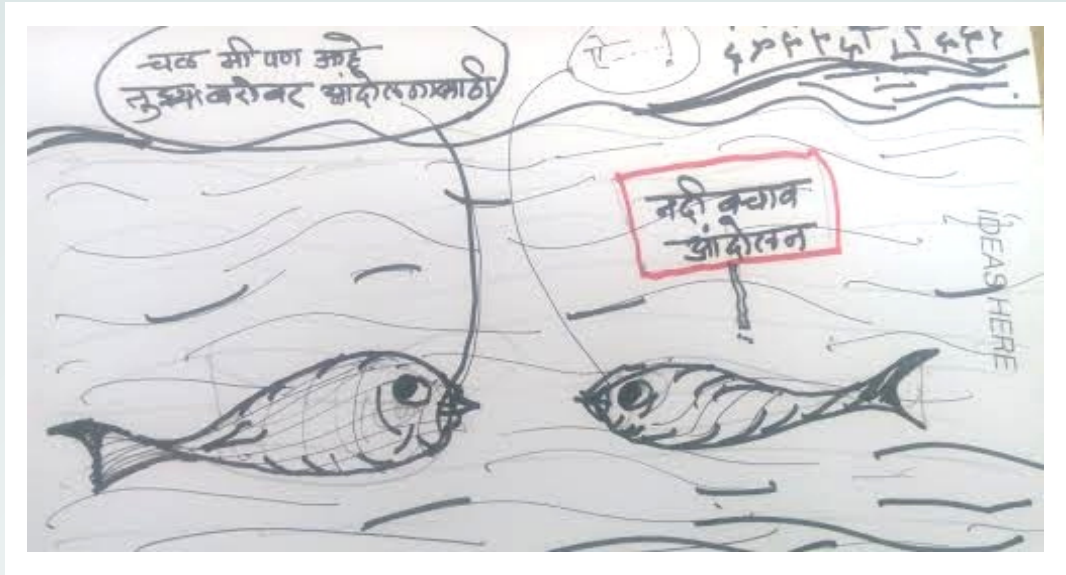 चल मी पण आहे
तुझ्या बरोबर आंदोलनासाठी
ये---!
नदी बचाव
आंदोलन
IDEAS HERE